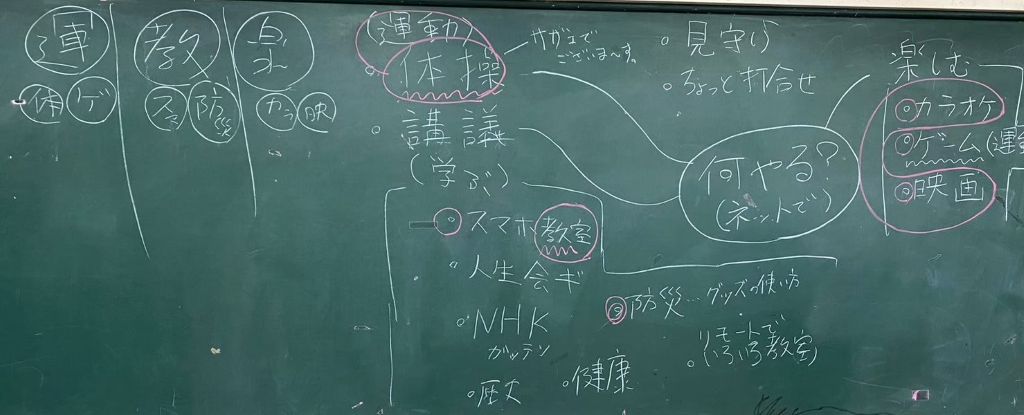 運
教
楽
体 ゲ
スマ 防災
カラ 映
(運動)
体操
講議
(学ぶ)
スマホ教室
人生会ギ
NHK
ガッテン
歴史
健康
防災…グッズの使い方
リモートで
(いろいろ教室)
見守り
ちょっと打合せ
何やる?
(ネットで)
楽しむ
カラオケ
ゲーム(運
映画